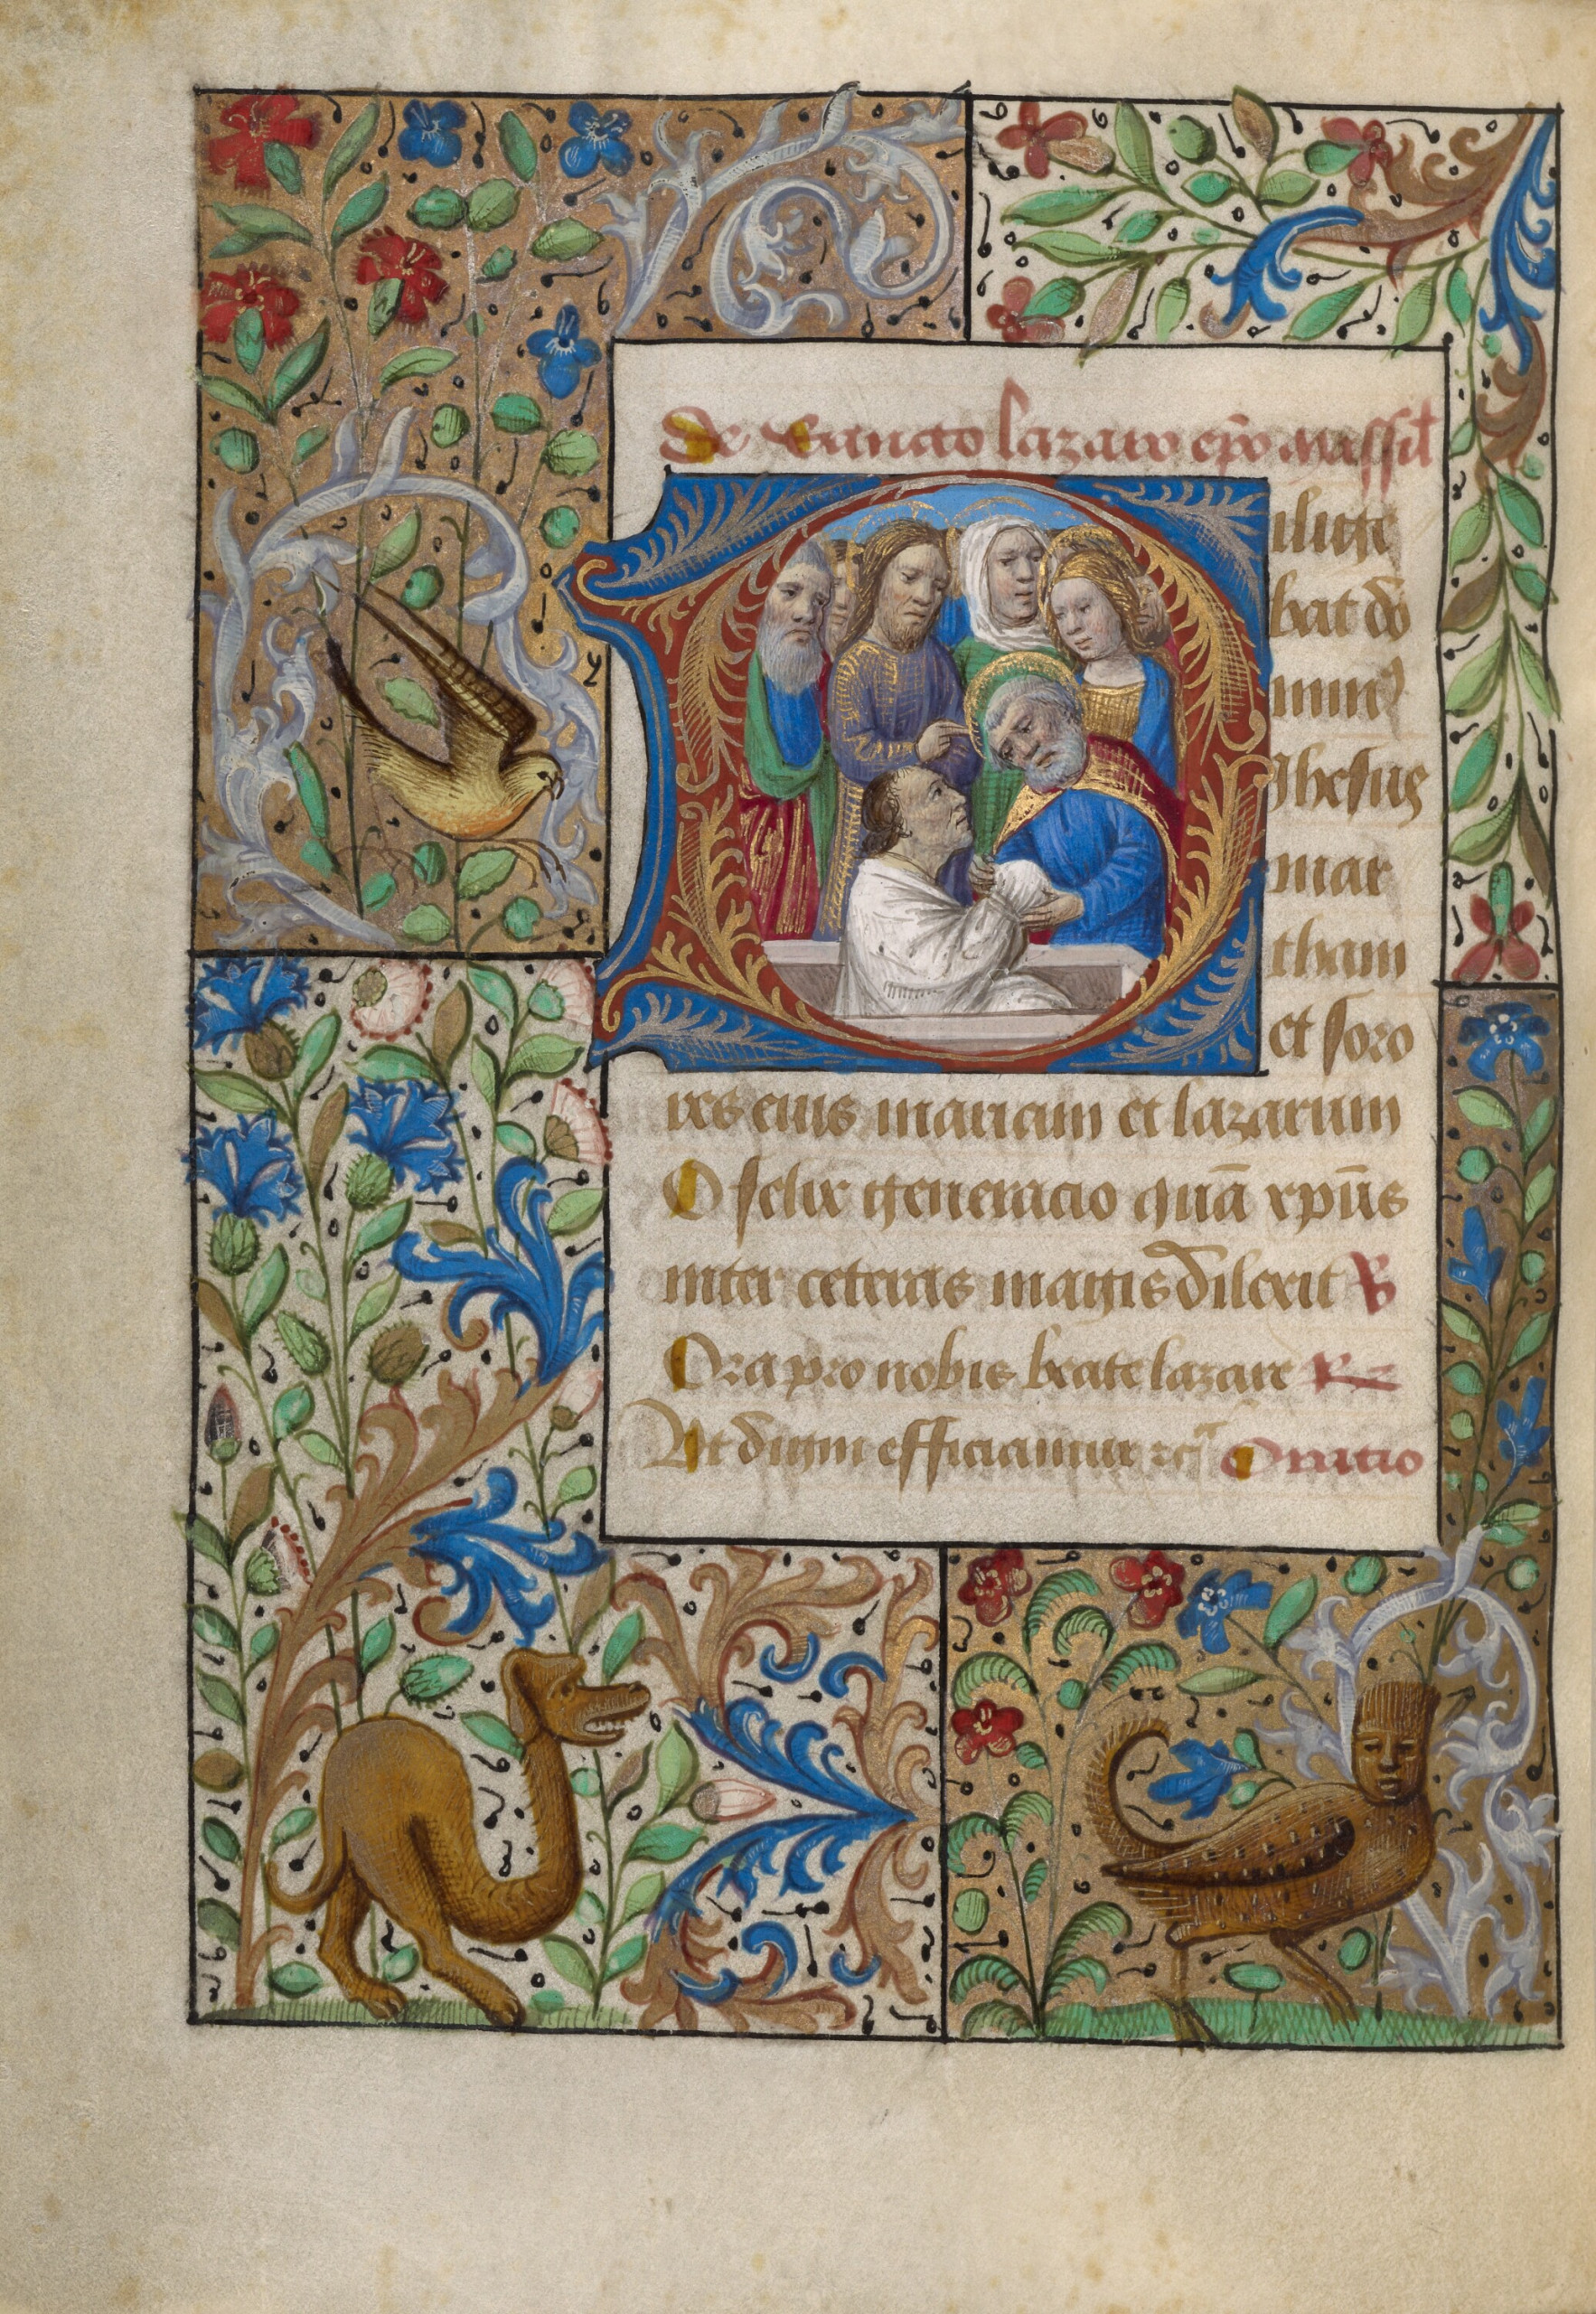 De sancto lazaro ep̃o massil̃
Diligebat do
minus
Ihesus
mar
tham
et soro
res eius mariam et lazarum
O felix generacio quā xp̄us
inter ceteras magis dilexit ℣
Ora pro nobis beate lazare ℟
Ut digni efficiamur ⁊cͣ Oratio